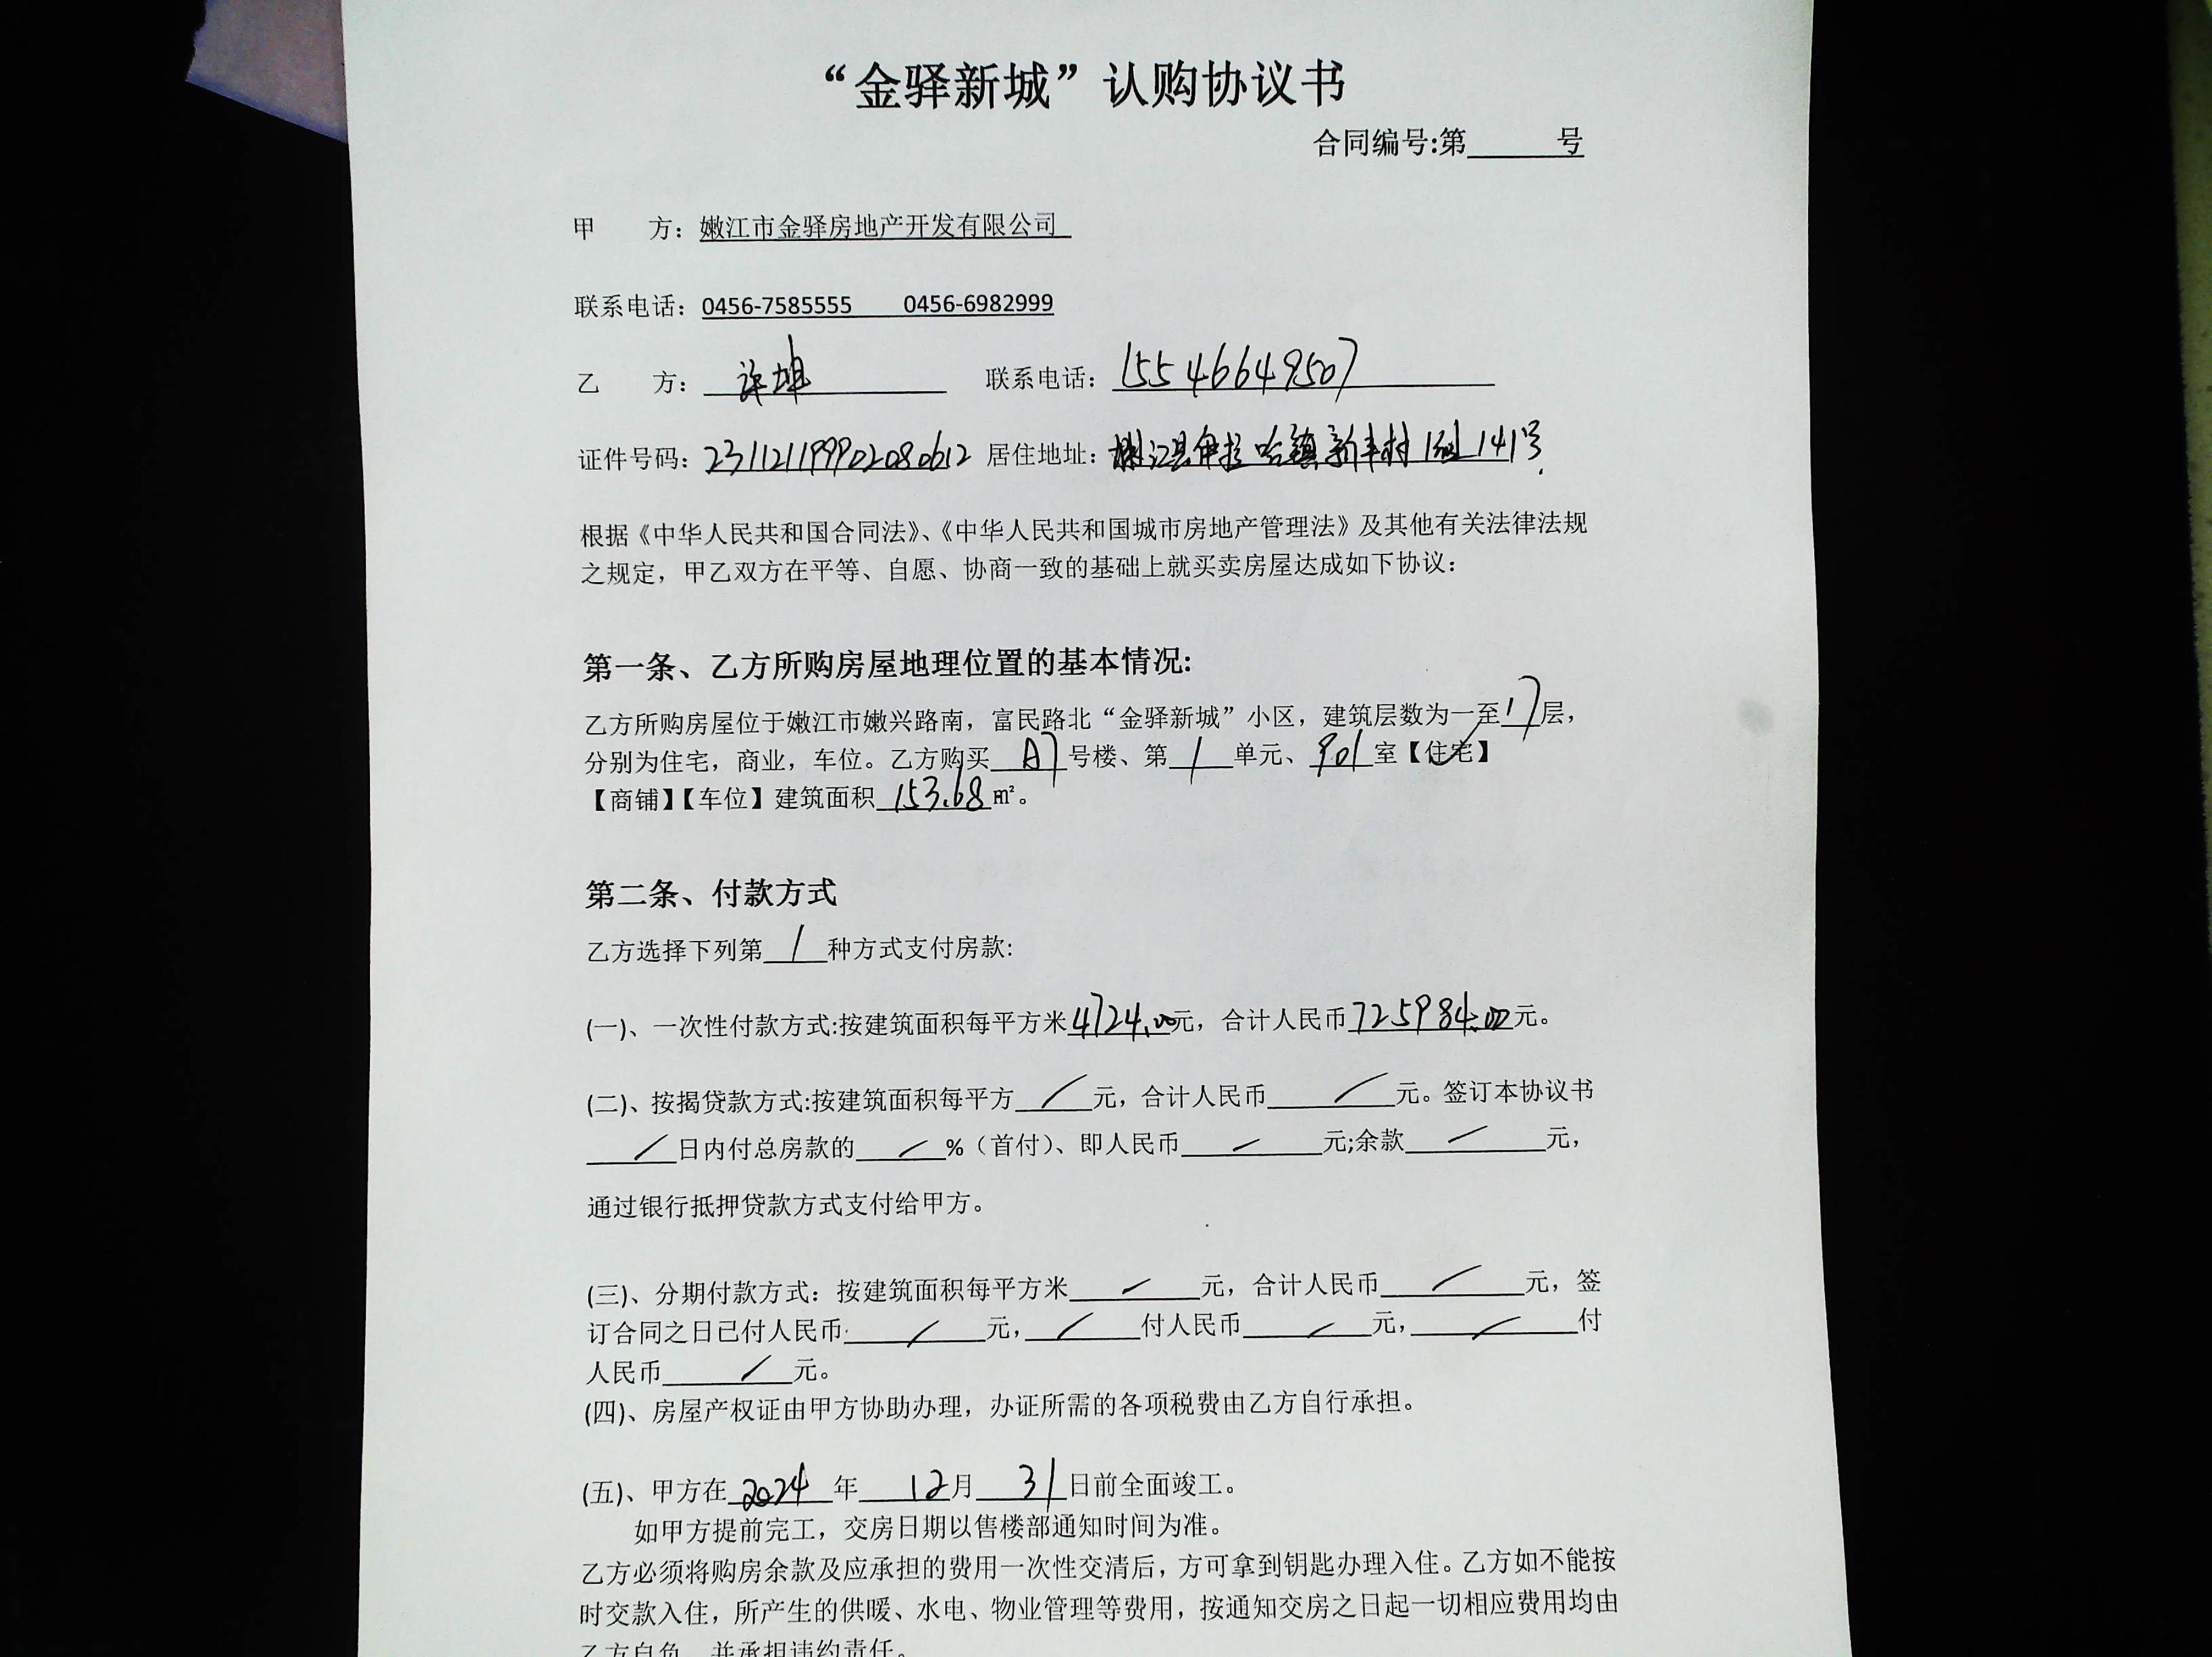 “金驿新城”认购协议书
合同编号:第______号
甲　　方：嫩江市金驿房地产开发有限公司
联系电话：0456-7585555　　0456-6982999
乙　　方：许坤　联系电话：15546649507
证件号码：231121199902080612 居住地址：嫩江县伊拉哈镇新丰村1组141号.
根据《中华人民共和国合同法》、《中华人民共和国城市房地产管理法》及其他有关法律法规
之规定，甲乙双方在平等、自愿、协商一致的基础上就买卖房屋达成如下协议：
第一条、乙方所购房屋地理位置的基本情况:
乙方所购房屋位于嫩江市嫩兴路南，富民路北“金驿新城”小区，建筑层数为一至17层，
分别为住宅，商业，车位。乙方购买A7号楼、第1单元、901室【住宅】✓
【商铺】【车位】建筑面积153.68㎡。
第二条、付款方式
乙方选择下列第1种方式支付房款:
(一)、一次性付款方式:按建筑面积每平方米4724.00元，合计人民币725984.00元。
(二)、按揭贷款方式:按建筑面积每平方/元，合计人民币/元。签订本协议书
/日内付总房款的/%（首付）、即人民币/元;余款/元，
通过银行抵押贷款方式支付给甲方。
(三)、分期付款方式：按建筑面积每平方米/元，合计人民币/元，签
订合同之日已付人民币/元，/付人民币/元，/付
人民币/元。
(四)、房屋产权证由甲方协助办理，办证所需的各项税费由乙方自行承担。
(五)、甲方在2024年12月31日前全面竣工。
如甲方提前完工，交房日期以售楼部通知时间为准。
乙方必须将购房余款及应承担的费用一次性交清后，方可拿到钥匙办理入住。乙方如不能按
时交款入住，所产生的供暖、水电、物业管理等费用，按通知交房之日起一切相应费用均由
乙方自负，并承担违约责任。